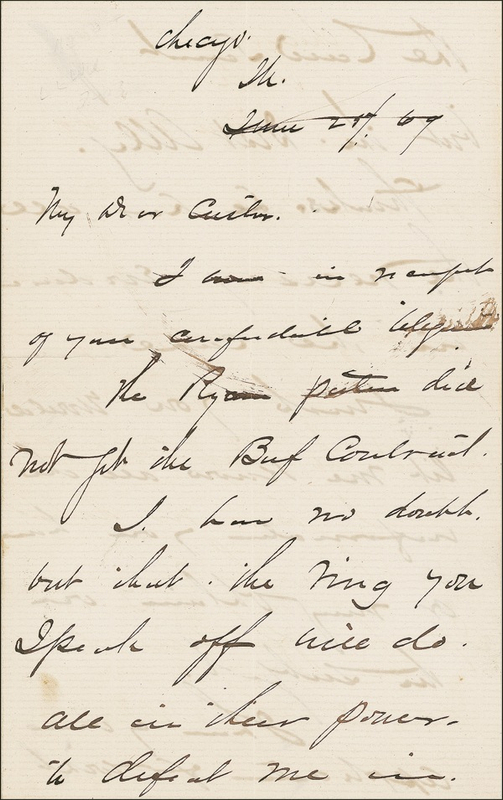 Chicago.
Ill.
June 25/69
My dear Custer.
I am in receipt
of your confidential
The Ryan party did
not get the Beef Contract.
I have no doubt.
but that. the ring you
Speak off will do.
all in their power.
to defeat me in.